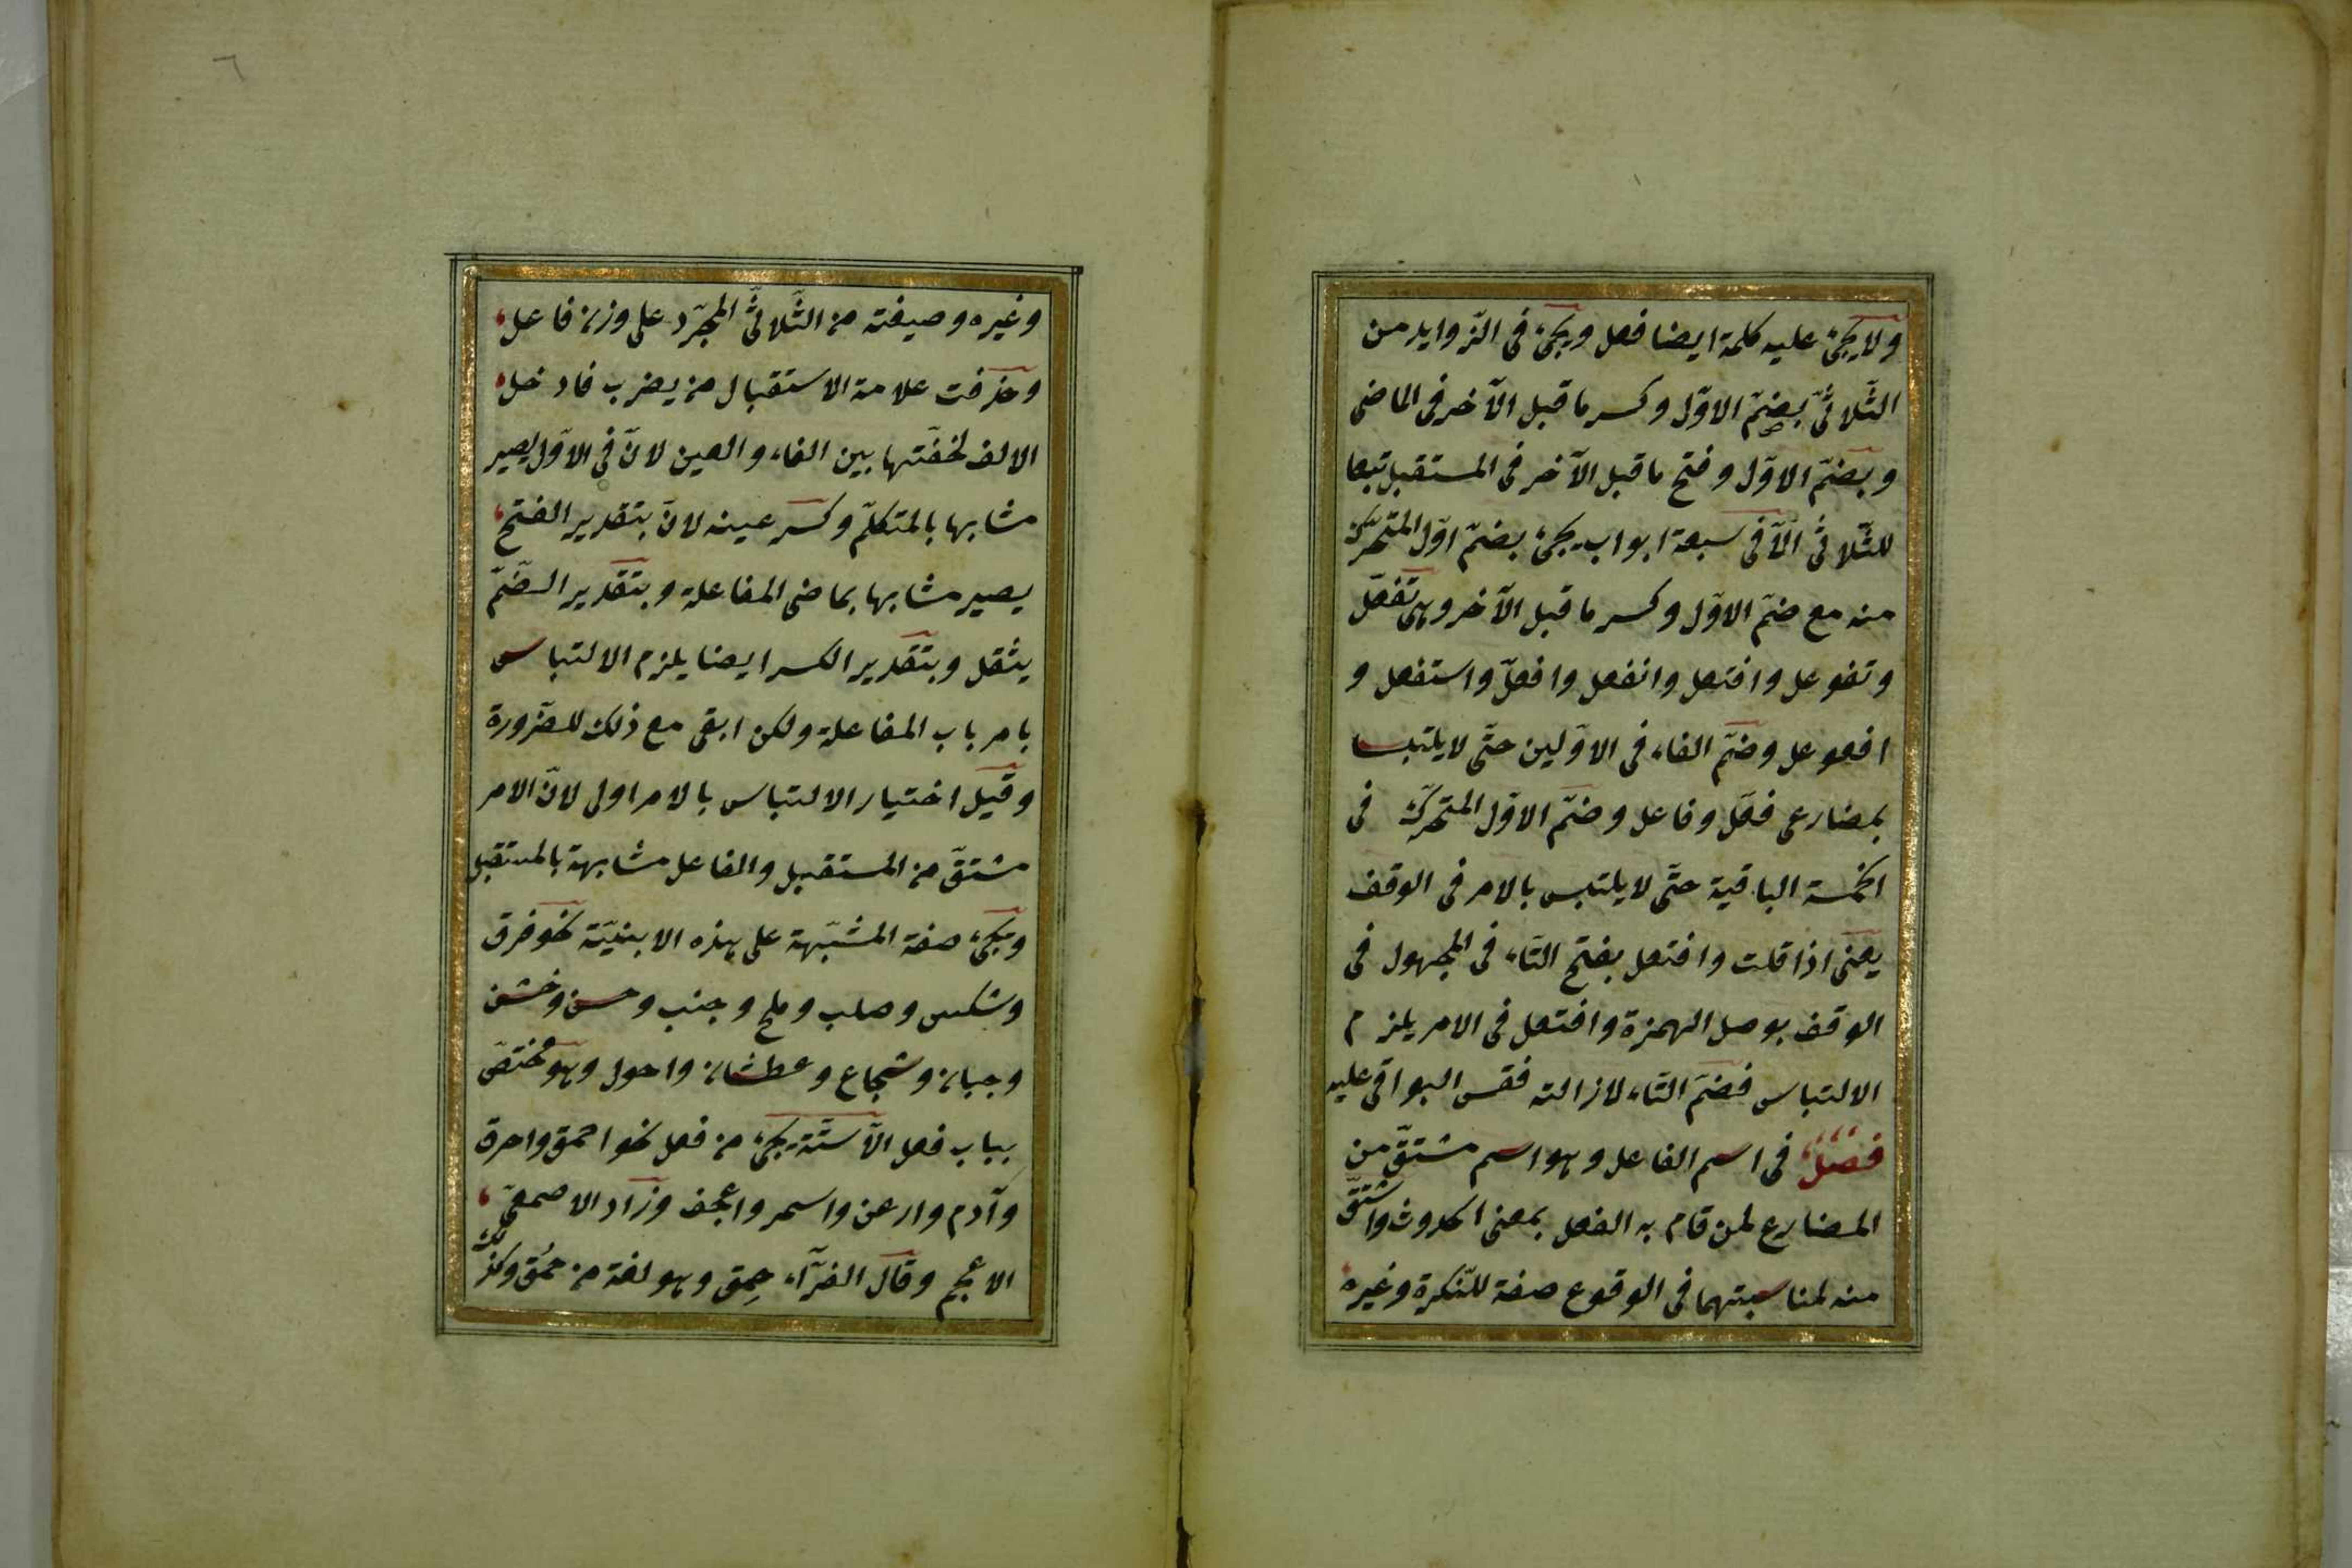 ولا يجئ عليه كلمة ايضا فعل ويجئ فى الزّوايد من
الثّلاثىّ بضمّ الاوّل وكسر ما قبل الآخر فى الماضى
وبضمّ الاوّل وفتح ما قبل الآخر فى المستقبل تبعا
للثّلاثىّ الّا فى سبعة ابواب يجئ بضمّ اوّل المتحرّك
منه مع ضمّ الاوّل وكسر ما قبل الآخر وهى تفعّل
وتفوعل وافتعل وانفعل وافعلّ واستفعل و
افعوعل وضمّ الفاء فى الاوّلين حتّى لا يلتبسا
بمضارعى فعّل وفاعل وضمّ الاوّل المتحرّك فى
الخمسة الباقية حتّى لا يلتبس بالامر فى الوقف
يعنى اذا قلت وافتعل بفتح التّاء فى المجهول فى
الوقف بوصل الهمزة وافتعل فى الامر يلزم
الالتباس فضمّ التّاء لازالته فقس البواقى عليه
فصل فى اسم الفاعل وهو اسم مشتقّ من
المضارع لمن قام به الفعل بمعنى الحدوث واشتقّ
منه لمناسبتهما فى الوقوع صفة للنّكرة وغيره
٦
وغيره وصيغته من الثّلاثىّ المجرّد على وزن فاعل
وحذفت علامة الاستقبال من يضرب فادخل
الالف لخفّتها بين الفاء والعين لانّ فى الاوّل يصير
مشابها بالمتكلّم وكسر عينه لانّ بتقدير الفتح
يصير مشابها بماضى المفاعلة وبتقدير الضّمّ
يثقل وبتقدير الكسر ايضا يلزم الالتباس
بامر باب المفاعلة ولكن ابقى مع ذلك للضّرورة
وقيل اختيار الالتباس بالامر اولى لانّ الامر
مشتقّ من المستقبل والفاعل مشابهة بالمستقبل
ويجئ صفة المشبّهة على هذه الابنيّة نحو فرق
وشكس وصلب وملح وجنب وحسن وخشن
وجبان وشجاع وعطشان واحول وهو مختصّ
بباب فعل الّا ستّة يجئ من فعل نحو احمق واحرق
وآدم وارعن واسمر واعجف وزاد الاصمعىّ
الاعجم وقال الفرّآء حمِق وهو لغة من حمُق وكذلك